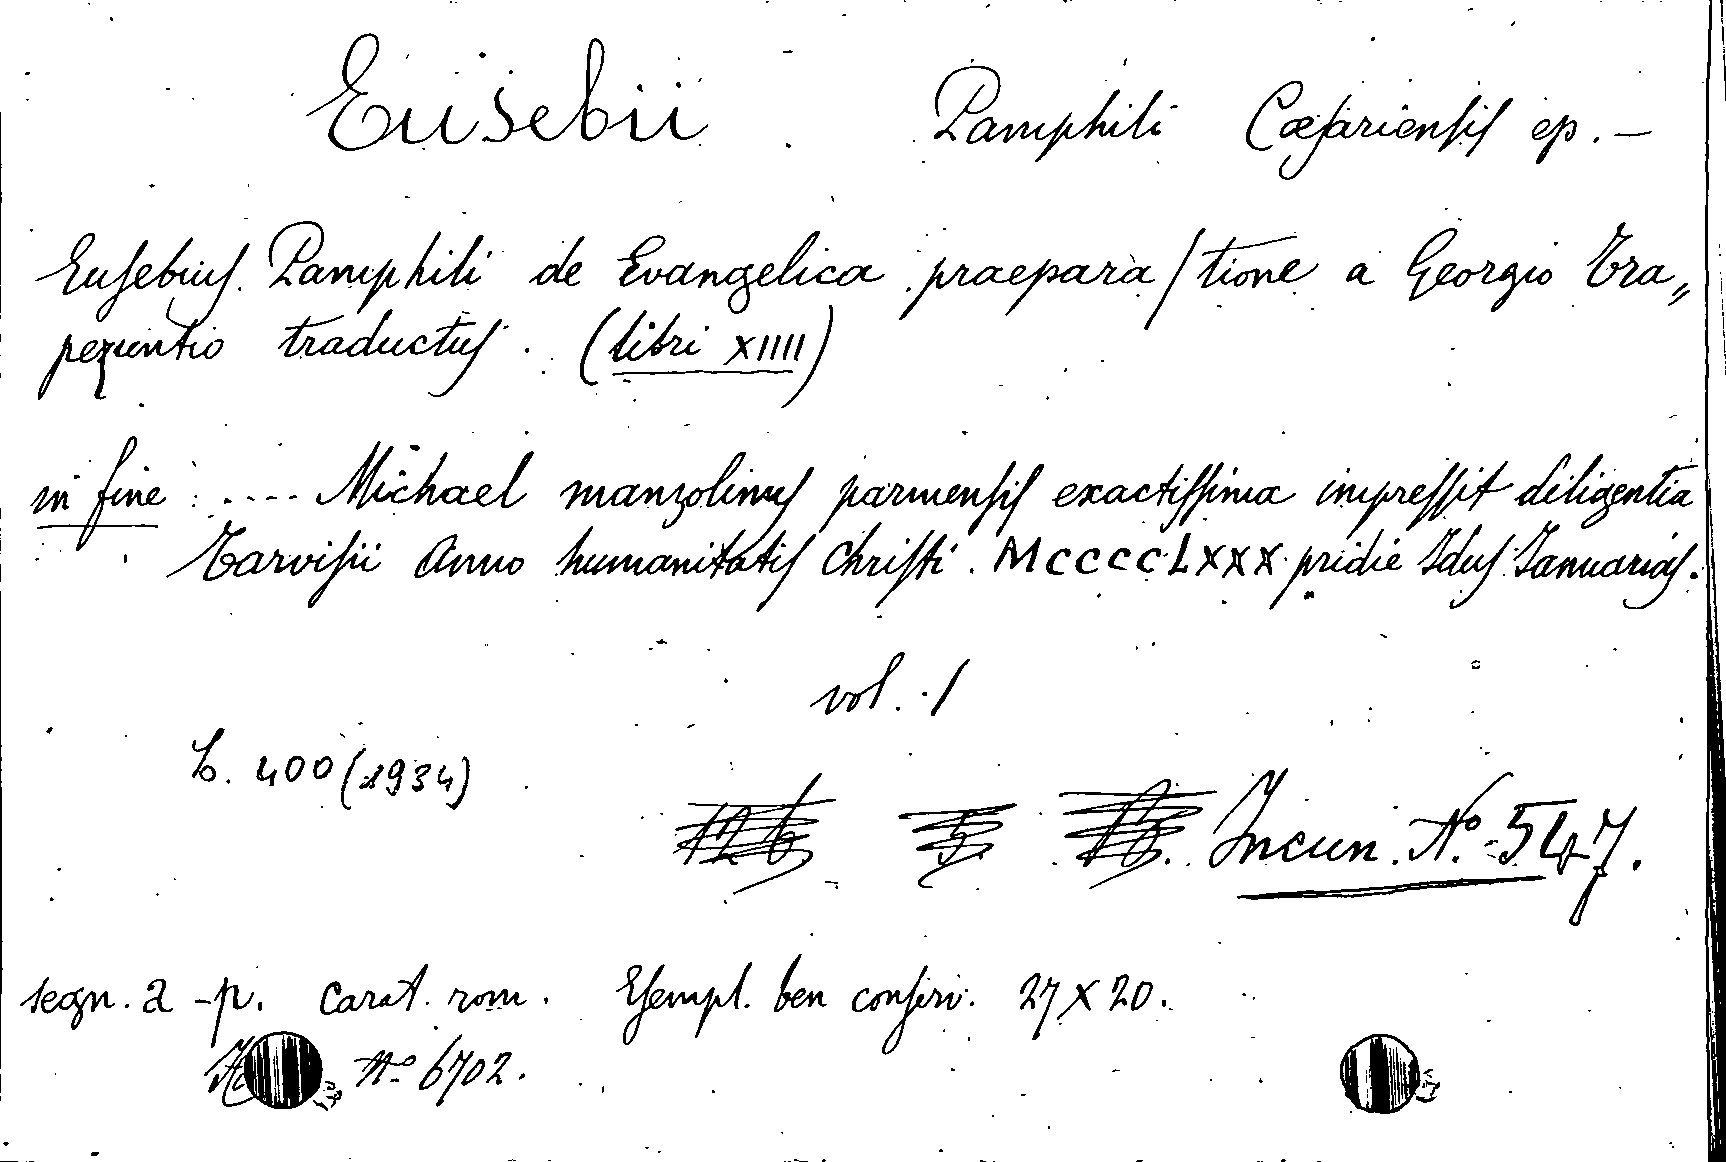 Eusebii Pamphili Cæsariensis ep. –
Eusebius Pamphili de Evangelica praepara/tione a Georgio Tra„
pezuntio traductus. (libri XIIII)
in fine: .... Michael manzolinus parmensis exactissima impressit diligentia
Tarvisii Anno humanitatis Christi. MCCCCLXXX pridie Idus Ianuarias.
vol. 1
L. 400 (1934)
Incun. No. 547.
segn. a - p. Carat. rom. Esempl. ben conserv. 27 x 20.
No 6702.